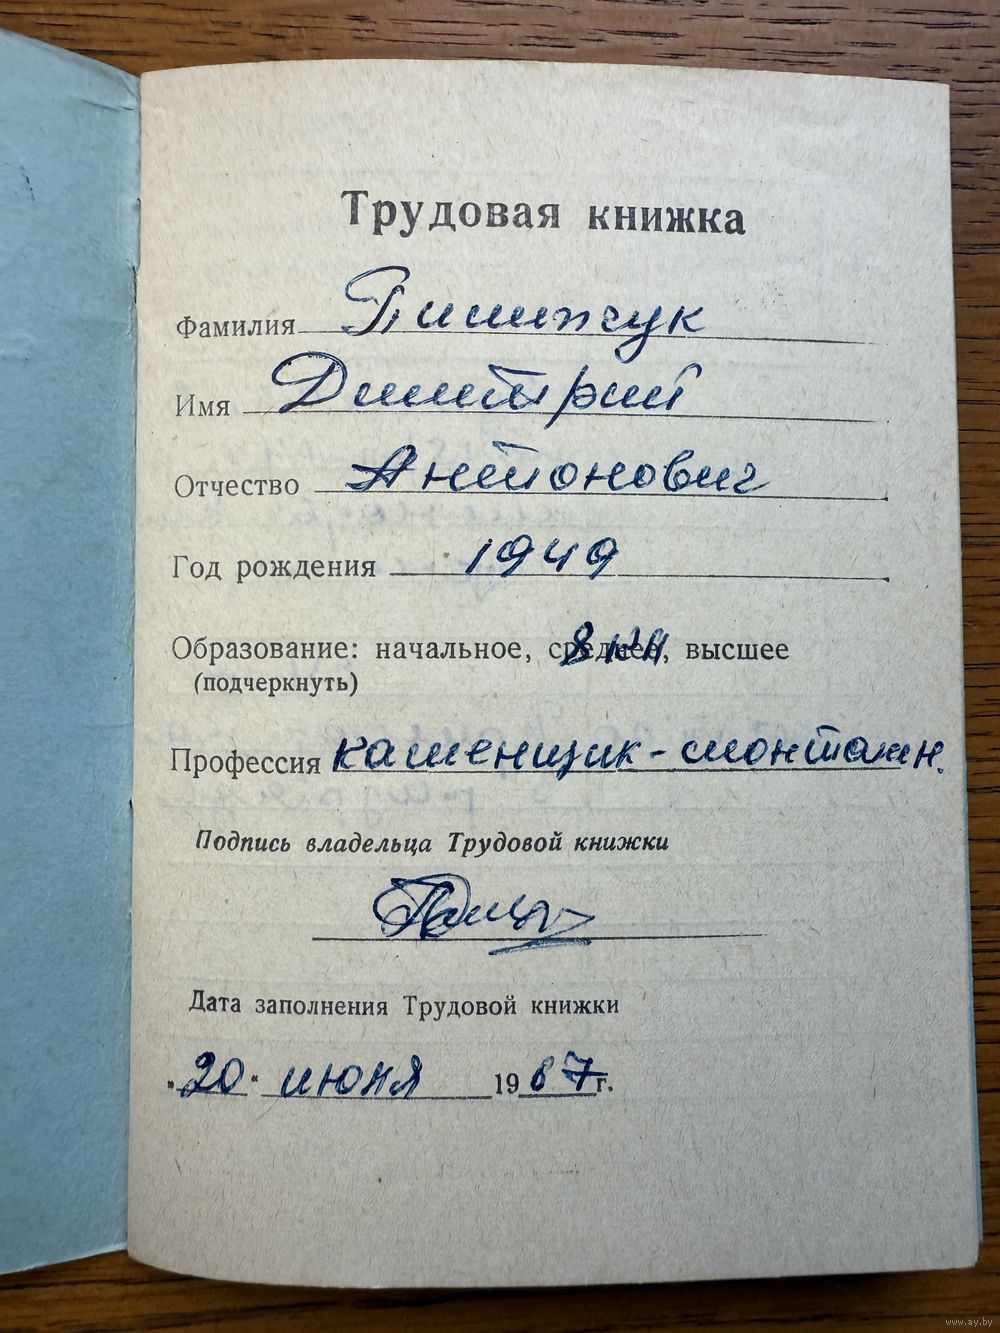 Трудовая книжка
Фамилия
Имя Дмитрий
Отчество Антонович
Год рождения 1949
Образование: начальное, среднее, высшее
8 кл
(подчеркнуть)
Профессия каменщик-монтажн.
Подпись владельца Трудовой книжки
Дата заполнения Трудовой книжки
"20" июня 1967г.
www.ay.by